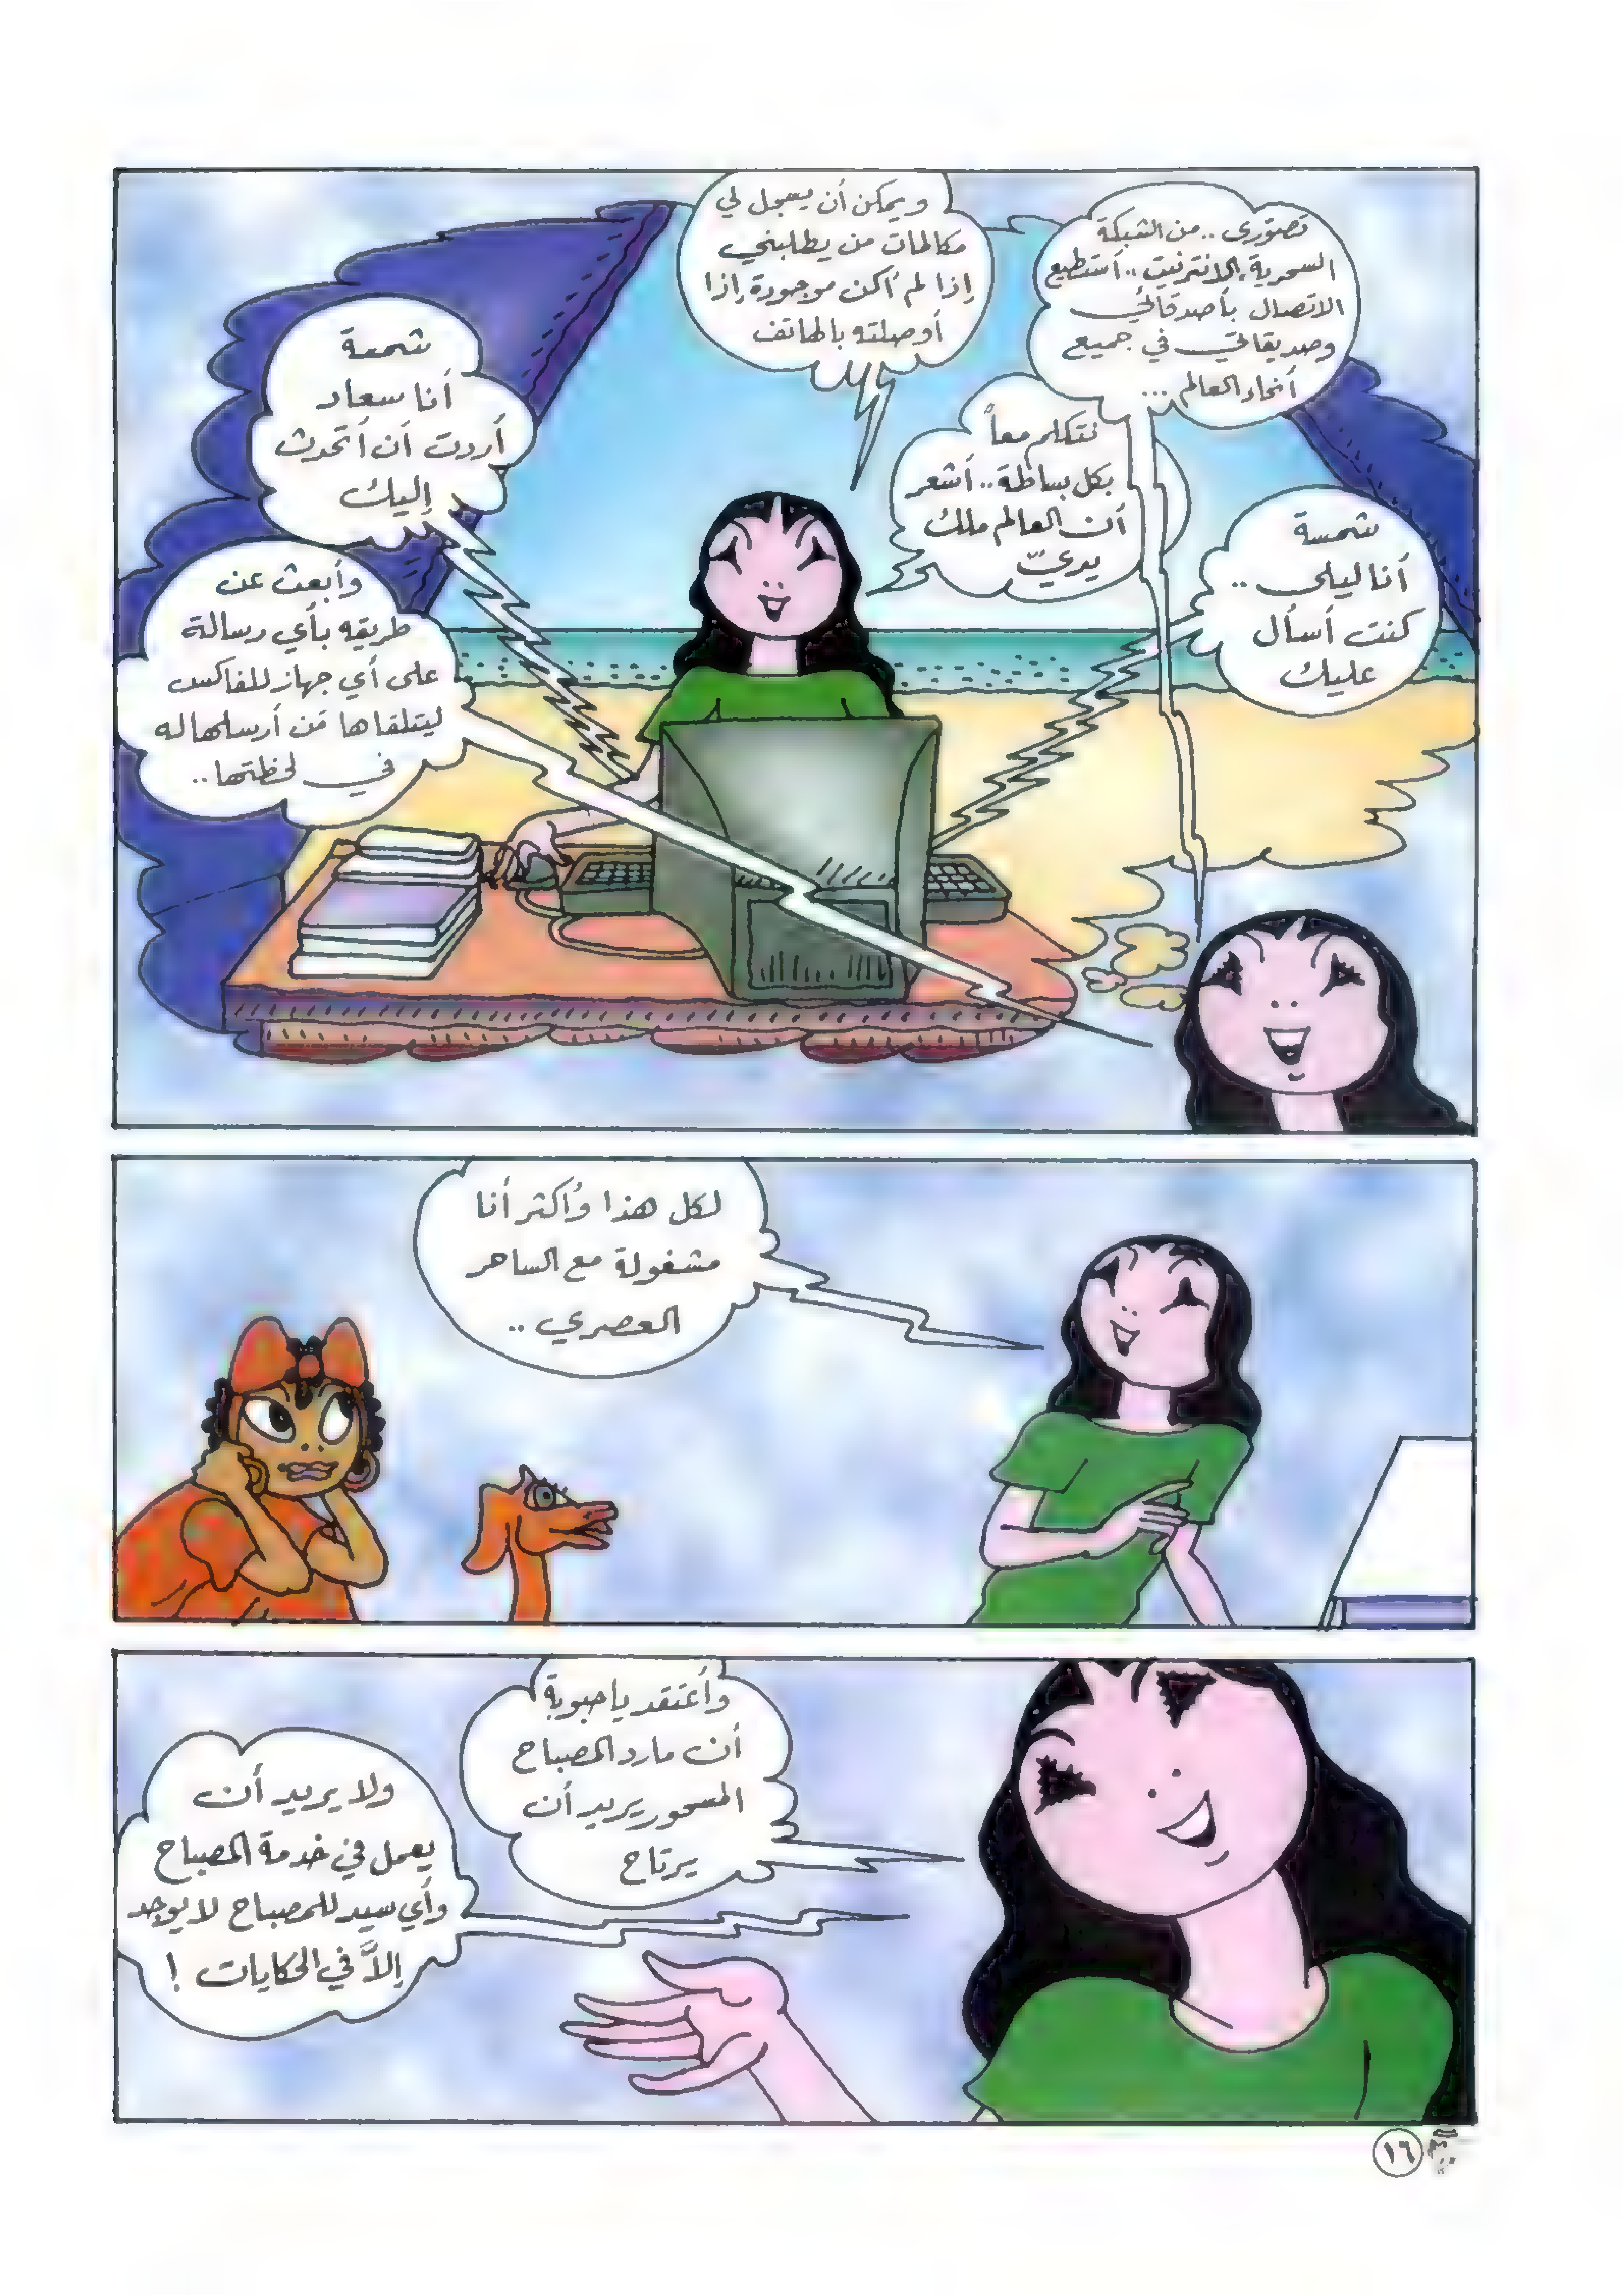 تصوّري .. من الشبكة
السحرية الانترنيت .. أستطيع
الاتصال بأصدقائي
وصديقاتي في جميع
أنحاء العالم ...
نتكلم معاً
بكل بساطة .. أشعر
أن العالم ملك
يديّ
شمسة
أنا ليلى ..
كنت أسأل
عليك
ويمكن أن يسجل لي
مكالمات من يطلبني
إذا لم أكن موجودة إذا
أوصلته بالهاتف
شمسة
أنا سعاد
أردت أن أتحدث
إليك
وأبعث عن
طريقه بأي رسالة
على أي جهاز للفاكس
ليتلقاها مَن أرسلها له
في لحظتها ..
لكل هذا وأكثر أنا
مشغولة مع الساحر
العصري ..
وأعتقد يا حبوبة
أن مارد المصباح
المسحور يريد أن
يرتاح
ولا يريد أن
يعمل في خدمة المصباح
وأي سيد للمصباح لا يوجد
إلاَّ في الحكايات !
١٦